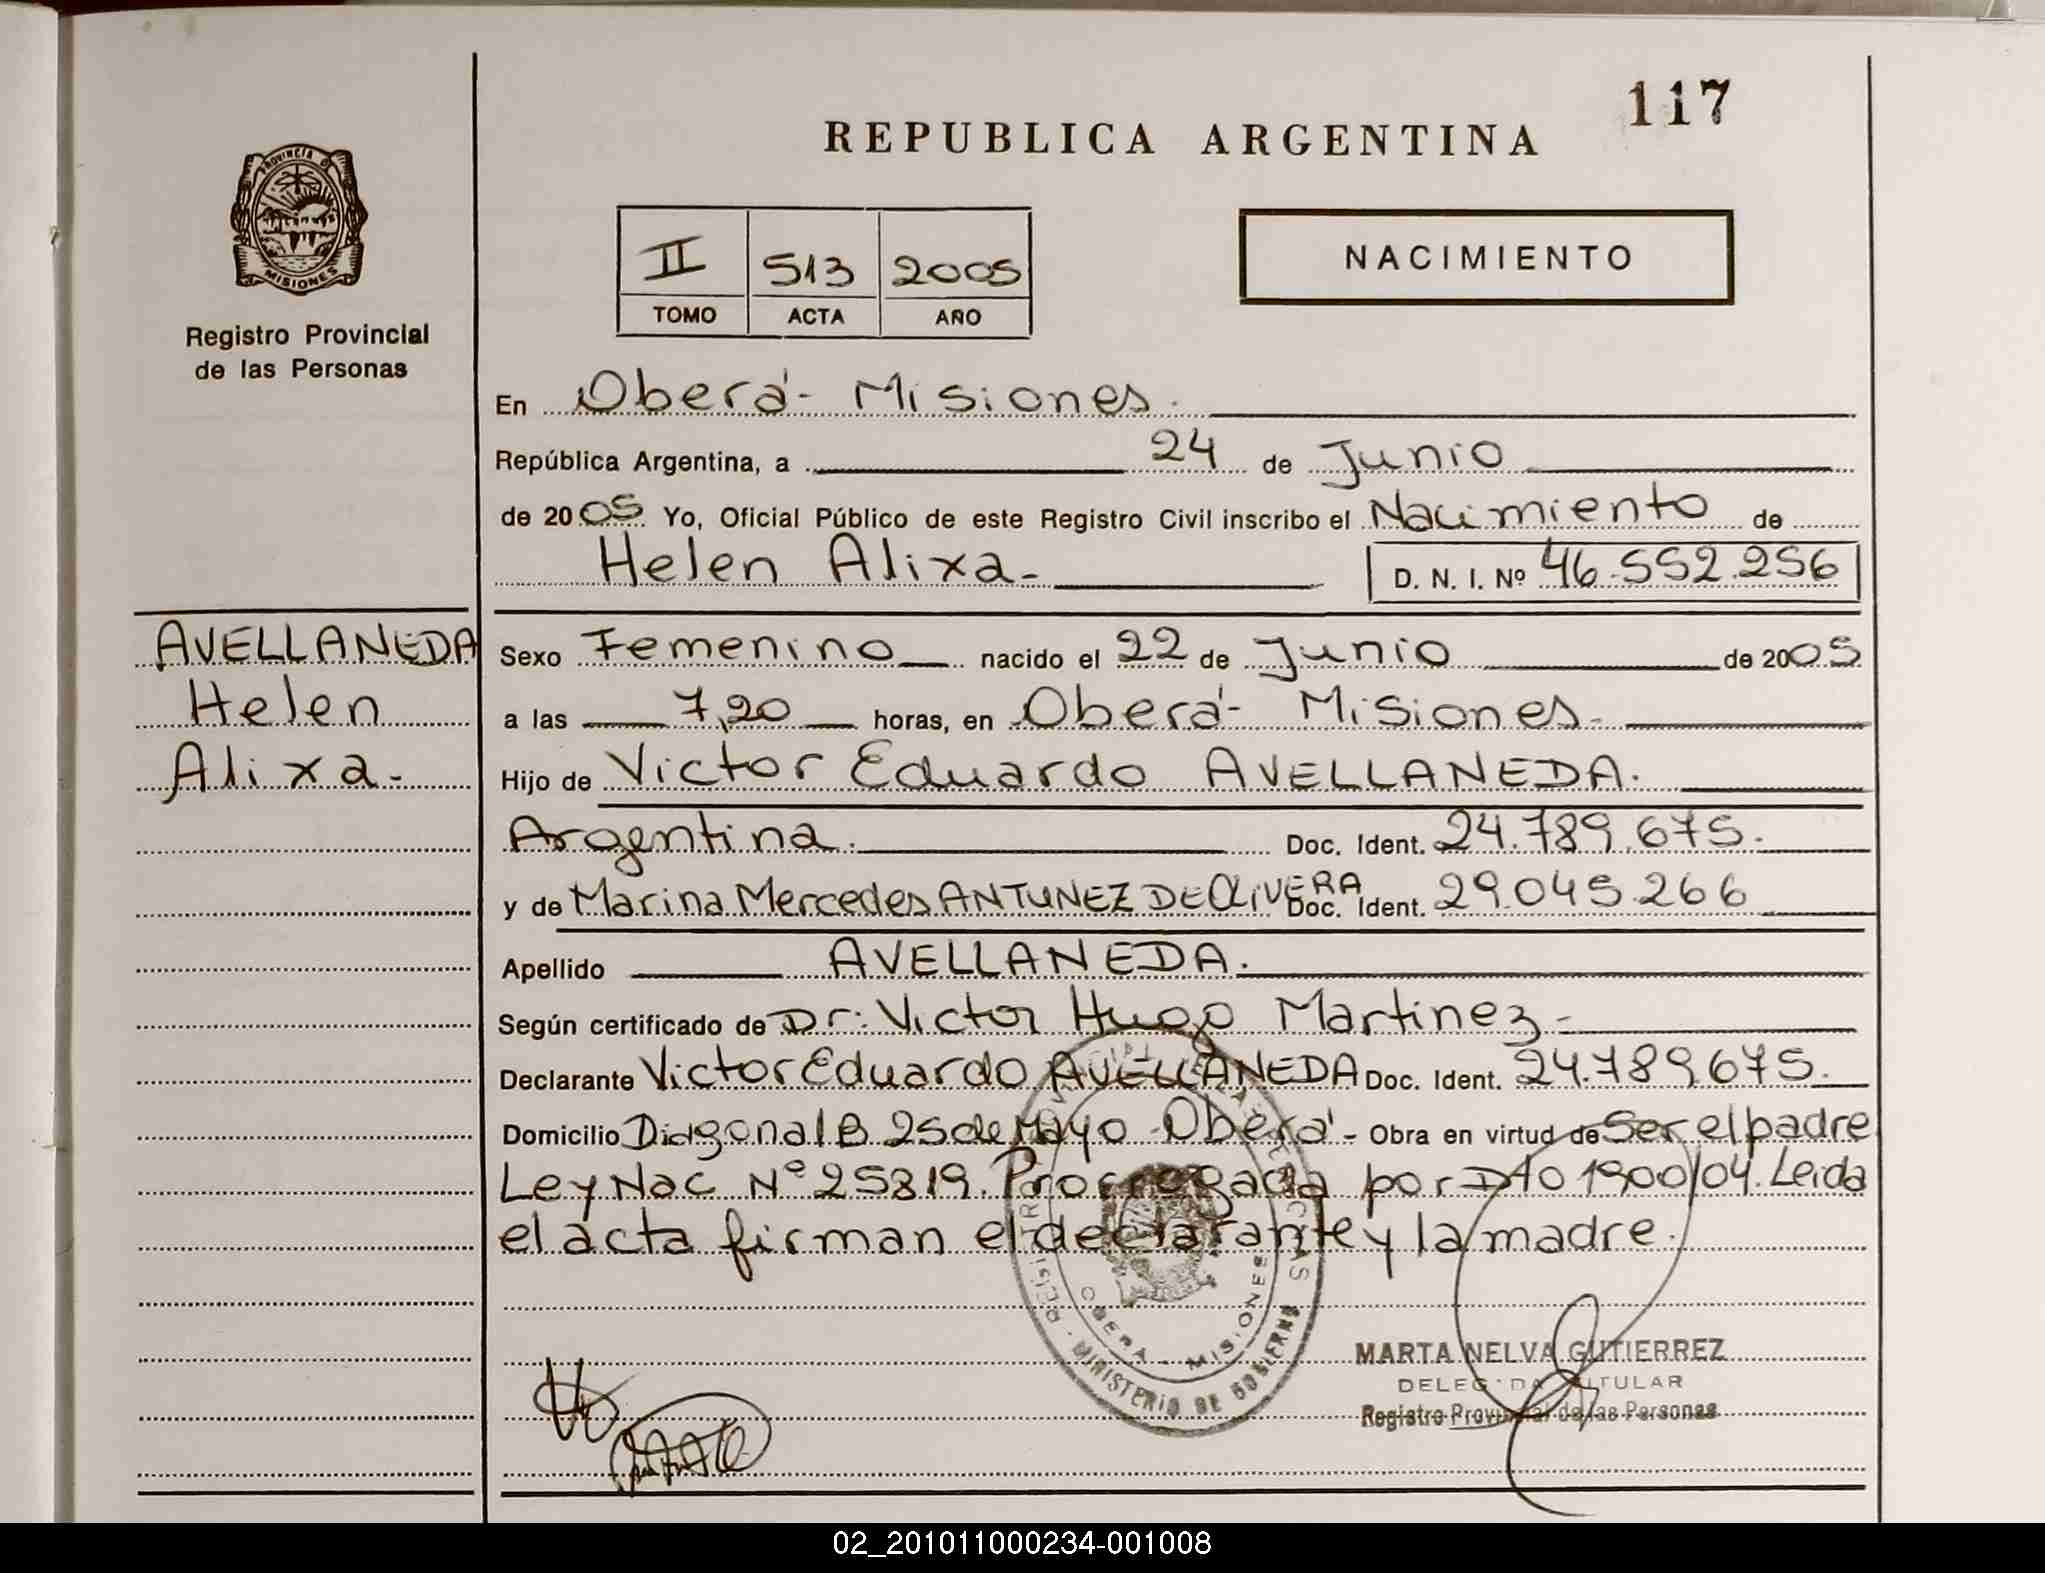 117
REPUBLICA ARGENTINA
PROVINCIA DE
MISIONES
Registro Provincial
de las Personas
II 513 2005
TOMO ACTA AÑO
NACIMIENTO
En Oberá - Misiones.
República Argentina, a 24 de Junio
de 2005 Yo, Oficial Público de este Registro Civil inscribo el Nacimiento de
Helen Alixa- D. N. I. Nº 46.552.256
AVELLANEDA
Helen
Alixa-
Sexo Femenino nacido el 22 de Junio de 2005
a las 7,20 horas, en Oberá- Misiones-
Hijo de Victor Eduardo AVELLANEDA.
Argentina. Doc. Ident. 24.789.675.
y de Marina Mercedes ANTUNEZ DE OLIVERA Doc. Ident. 29.045.266
Apellido AVELLANEDA.
Según certificado de Dr: Victor Hugo Martinez-
Declarante Victor Eduardo AVELLANEDA Doc. Ident. 24.789.675.
Domicilio Diagonal B 25 de Mayo - Oberá - Obra en virtud de Ser el padre
Ley Nac Nº 25819. Prorrogada por Dto 1900/04. Leida
el acta firman el declarante y la madre.
OBERA - MISIONES
MINISTERIO DE GOBIERNO
MARTA NELVA GUTIERREZ
DELEGADA TITULAR
Registro Provincial de las Personas
02_201011000234-001008